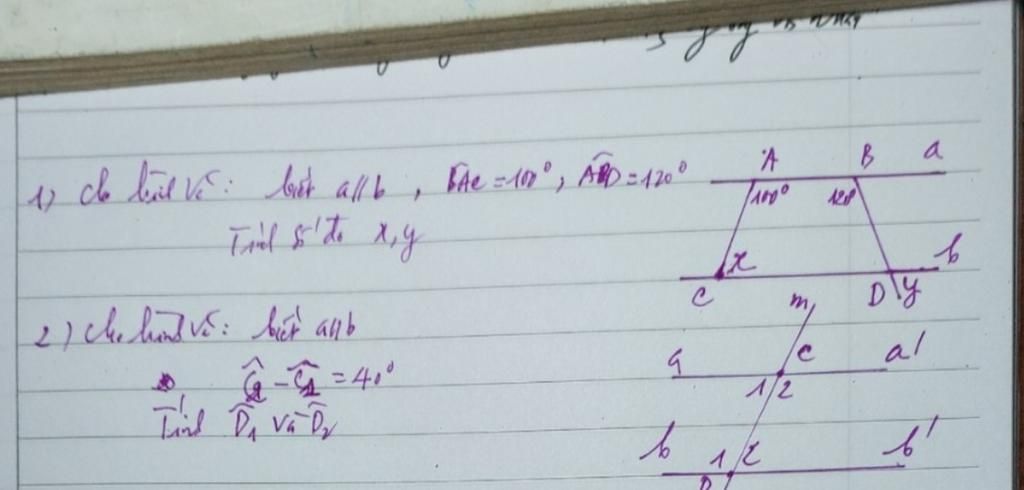 1) Cho hình vẽ: biết a//b, BAC = 100°, ABD = 120°
Tính số đo x, y
A B a
100° 120°
x b
C D y
2) Cho hình vẽ: biết a//b
Ĉ2 - Ĉ1 = 40°
Tính D̂1 và D̂2
m
a C a'
1 2
b 1 2 b'
D